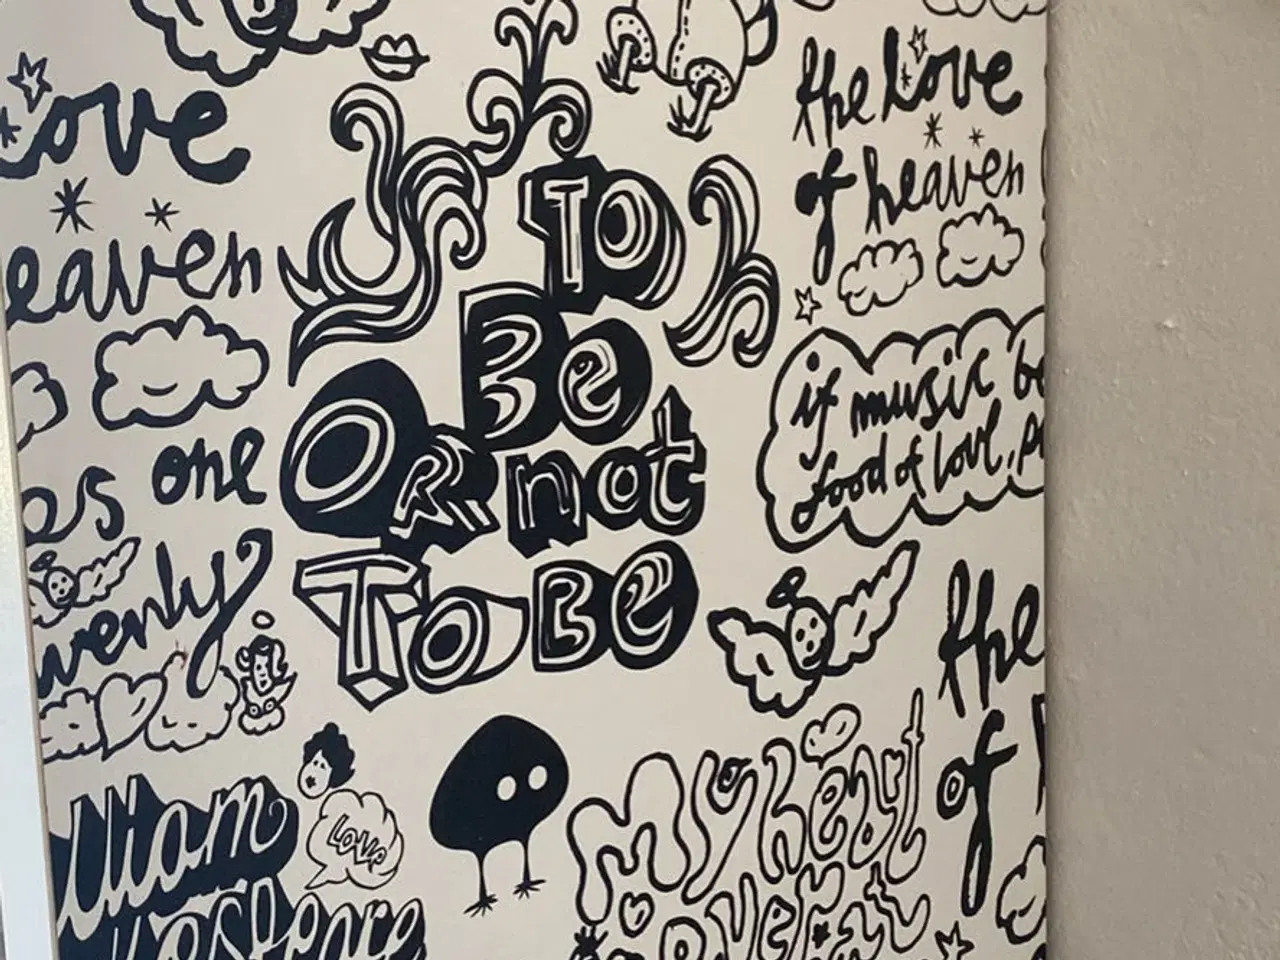 ove
eaven
es one
venly
TO
Be
OR not
To BE
the Love
of heaven
if music be
food of love, p
the
of h
My heart
is over at
Love
lliam
kespeare